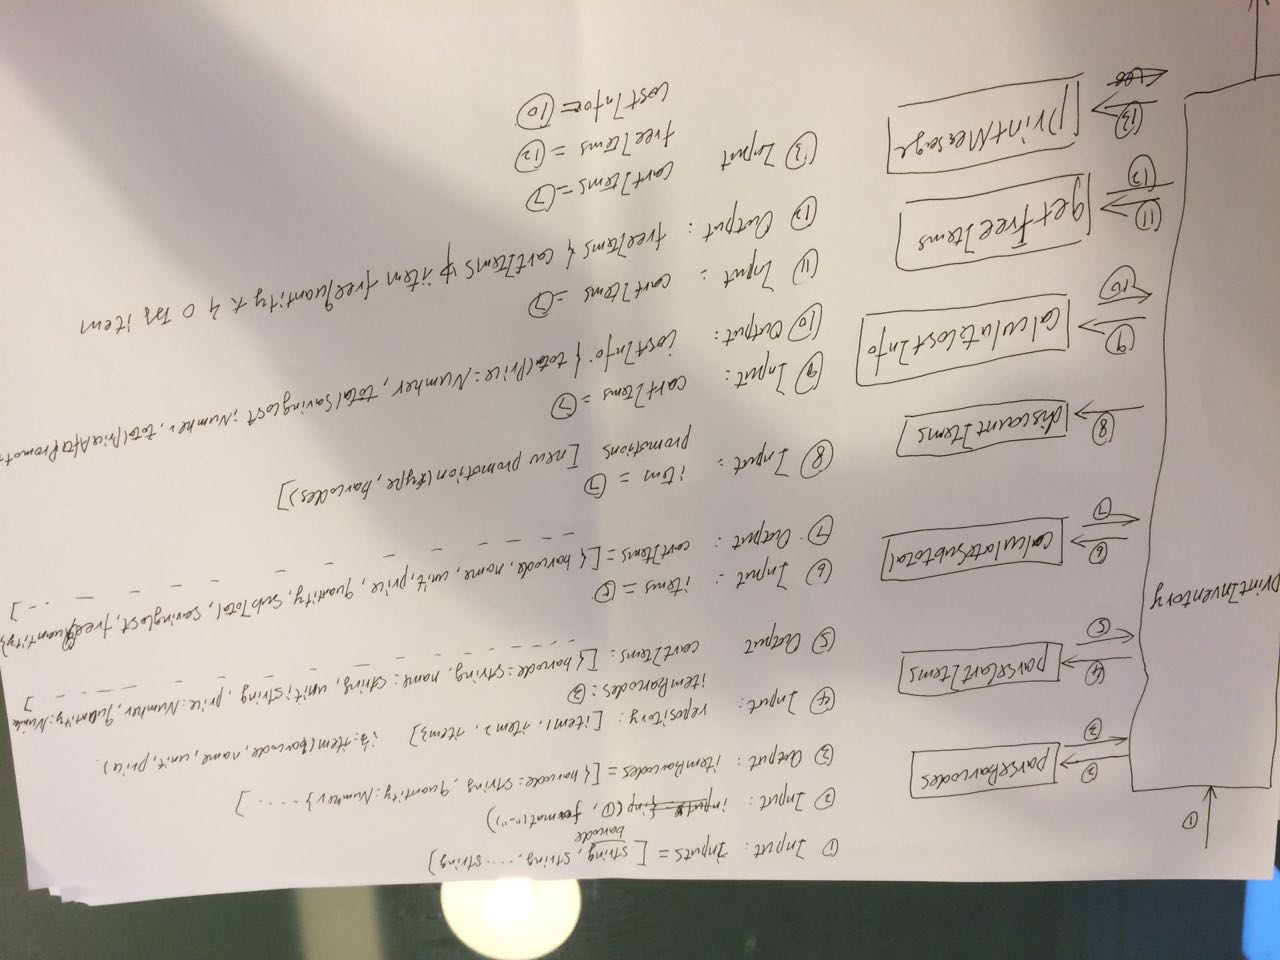 ①
printInventory
②
③
parseBarcodes
④
⑤
parseCartItems
⑥
⑦
calculateSubtotal
⑧
discountItems
⑨
⑩
calculateCostInfo
⑪
⑫
getFreeItems
⑬
printMeasage
① Input: Inputs = [string, string, ..... string]
barcode
② Input: (①, format("-"))
③ Output: itemBarcodes = [{barcode: string, quantity: Number} ..... ]
④ Input: repository: [item1, item2, item3] item(barcode, name, unit, price).
itemBarcodes: ③
⑤ Output cartItems: [{barcode: string, name: string, unit: string, price: Number, quantity:
]
⑥ Input: items = ⑤
⑦ Output: cartItems = [{barcode, name, unit, price, quantity, subTotal, savingCost, freeQuantity}
... ]
⑧ Input: item = ⑦
promotions [new promotion(type, barcodes)]
⑨ Input: cartItems = ⑦
⑩ Output: costInfo { totalPrice: Number, totalSavingCost: Number, totalPriceAfter
⑪ Input: cartItems = ⑦
⑫ Output: freeItems { cartItems item freeQuantity 0 item
⑬ Input cartItems = ⑦
freeItems = ⑫
costInfo = ⑩